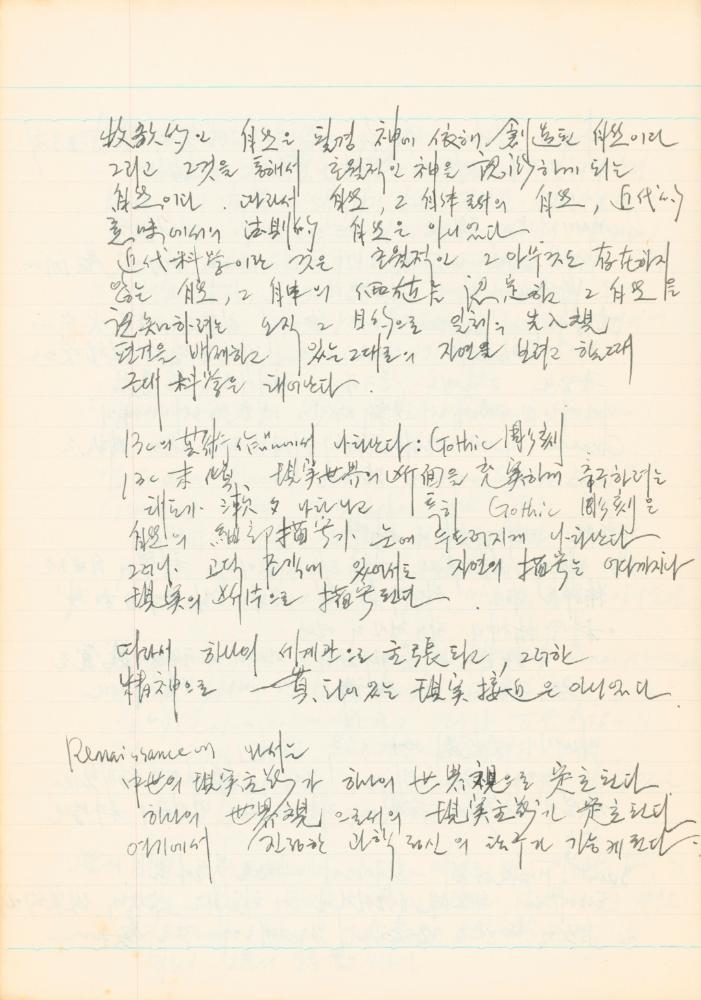 牧歌的인 自然은 필경 神에 依해 創造된 自然이다
그리고 그것을 통해서 초월적인 神을 認識하게 되는
自然이다. 따라서 自然, 그 自体로서의 自然, 近代的
意味에서의 法則的 自然은 아니었다
近代科学이란 것은 초월적인 그 아무것도 存在하지
않는 自然, 그 自体의 価値를 認定하고 그 自然을
認知하려는 오직 그 目的으로 일체의 先入観
편견을 배제하고 있는 그대로의 자연을 보려고 하는데
근대 科学은 태어난다.
13C의 芸術作品에서 나타난다: Gothic 彫刻
13C 末 現実世界의 断面을 充実하게 추구하려는
태도가 나타나고 특히 Gothic 彫刻은
自然의 細部描写가 눈에 두드러지게 나타난다
그러나 고딕 조각에 있어서도 자연의 描写는 어디까지나
現実의 断片으로 描写된다.
따라서 하나의 세계관으로 主張되고, 그러한
精神으로 一貫되어 있는 現実 接近은 아니었다.
Renaissance에 와서는
中世의 現実主義가 하나의 世界観으로 定立된다
하나의 世界観으로서의 現実主義가 定立된다
여기에서 진정한 과학 정신의 추구가 가능케 된다.